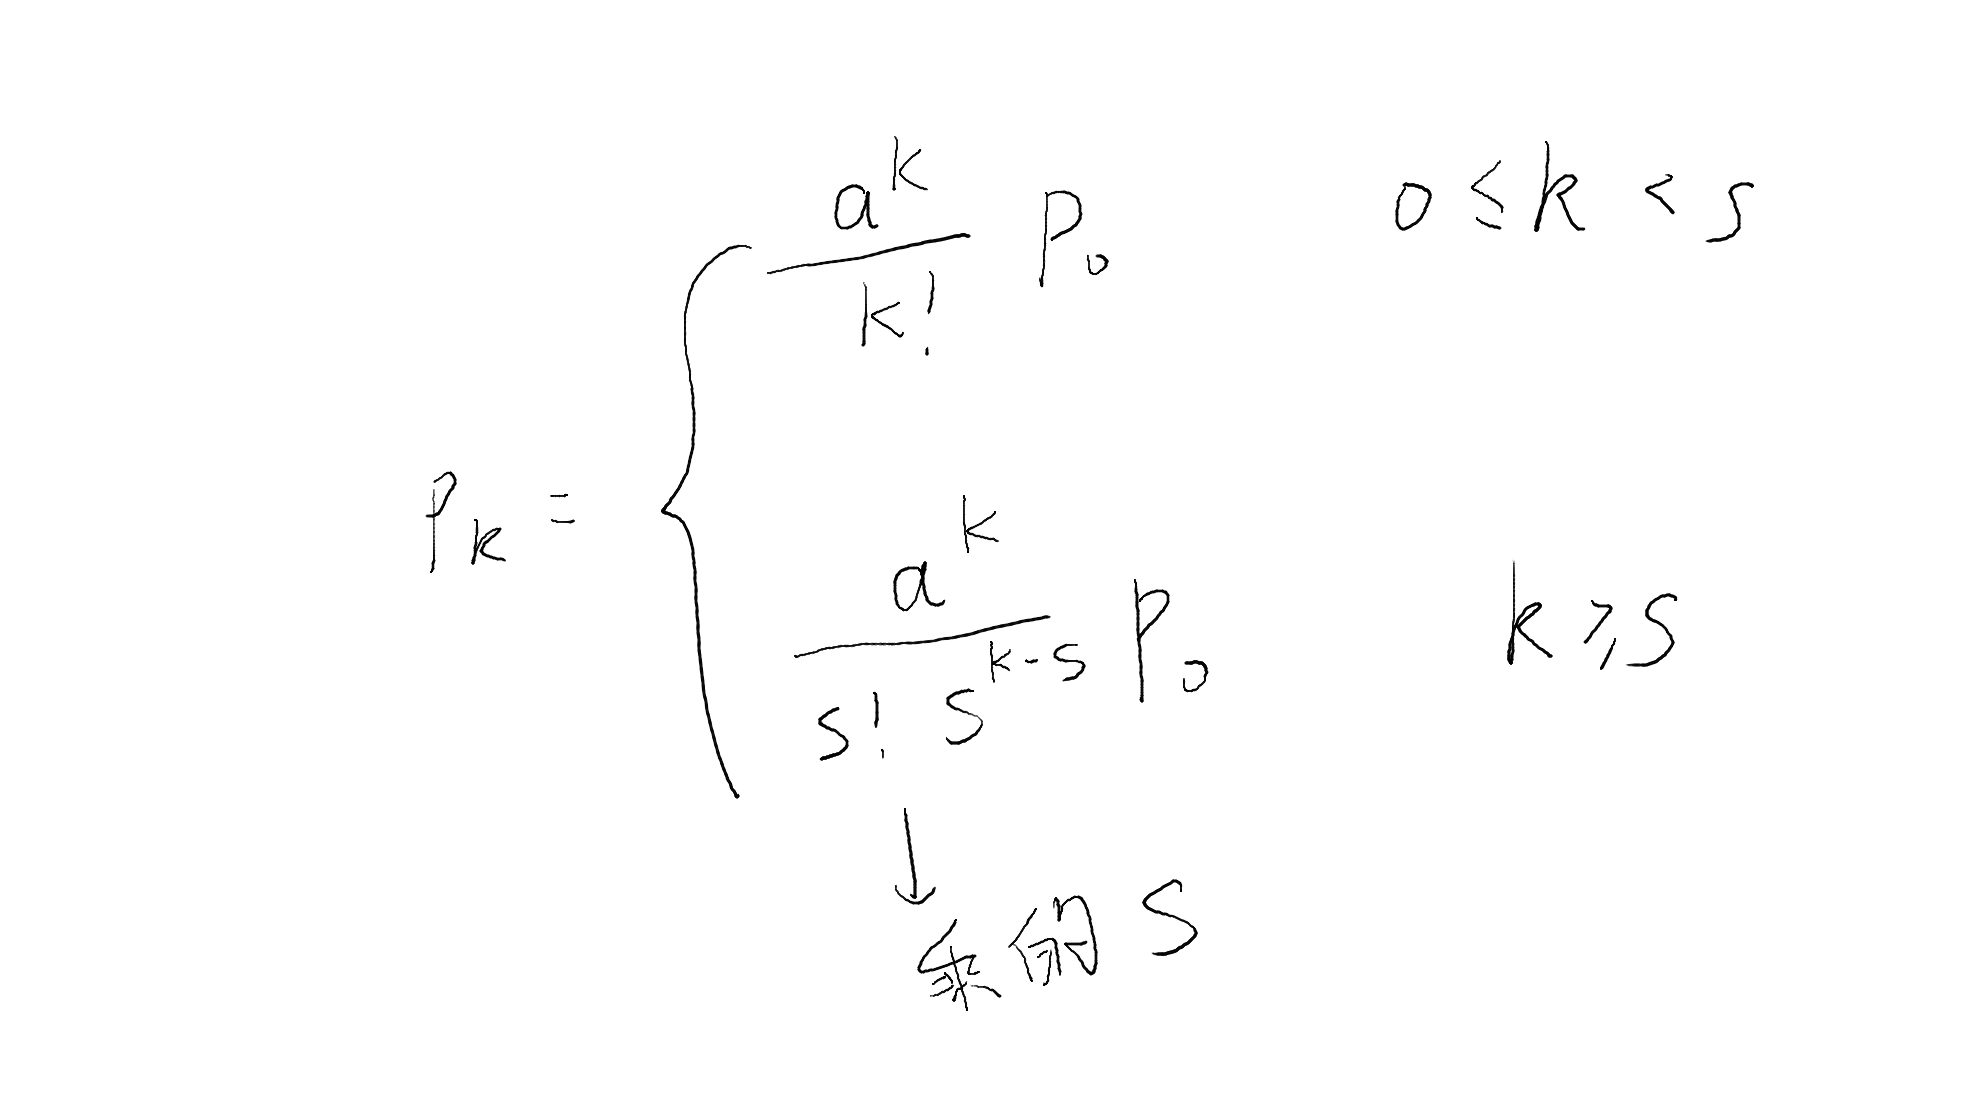 P_k = { \frac{a^k}{k!} P_0    0 ≤ k < s
\frac{a^k}{s! s^{k-s}} P_0    k ≥ s
↓
乘的 S